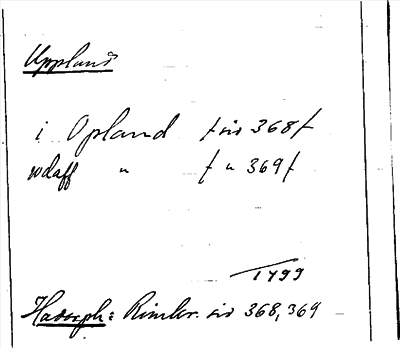 Uppland
i Opland /: sid 368 :/
vdaff " /: " 369 :/
1499
Hadorph: Rimkr. sid 368, 369